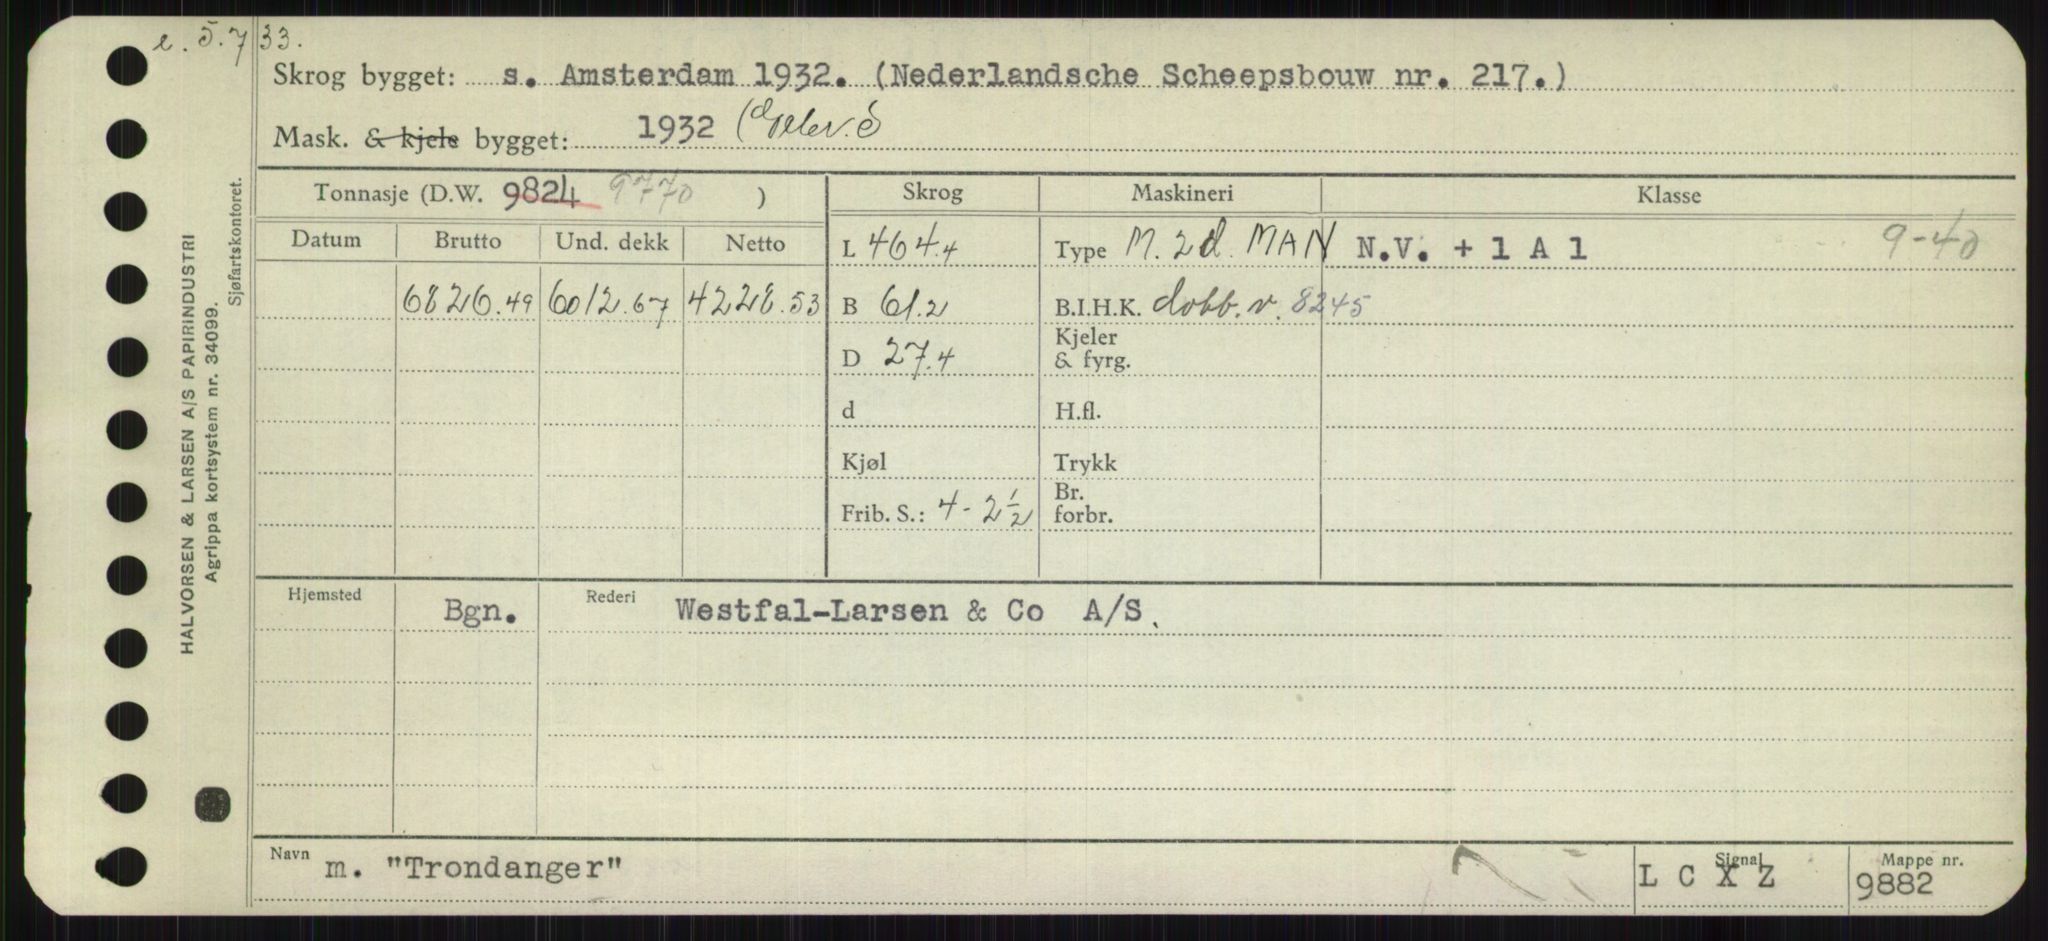 e. 5.7 33.
Skrog bygget: s. Amsterdam 1932. (Nederlandsche Scheepsbouw nr. 217.)
Mask. & kjele bygget: 1932
Tonnasje (D.W. 9824 9770 )
Skrog Maskineri Klasse
Datum Brutto Und. dekk Netto
L 464.4 Type M. 2d. MAN N.V. + 1 A 1 9-40
6826.49 6012.67 4228.53 B 61.2 B.I.H.K. dobb. v. 8245
D 27.4 Kjeler & fyrg.
d H.fl.
Kjøl Trykk
Frib. S.: 4 - 2 1/2 Br. forbr.
Hjemsted Bgn. Rederi Westfal-Larsen & Co A/S.
Navn m. "Trondanger" Signal L C X Z Mappe nr. 9882
HALVORSEN & LARSEN A/S PAPIRINDUSTRI
Agrippa kortsystem nr. 34099.
Sjøfartskontoret.